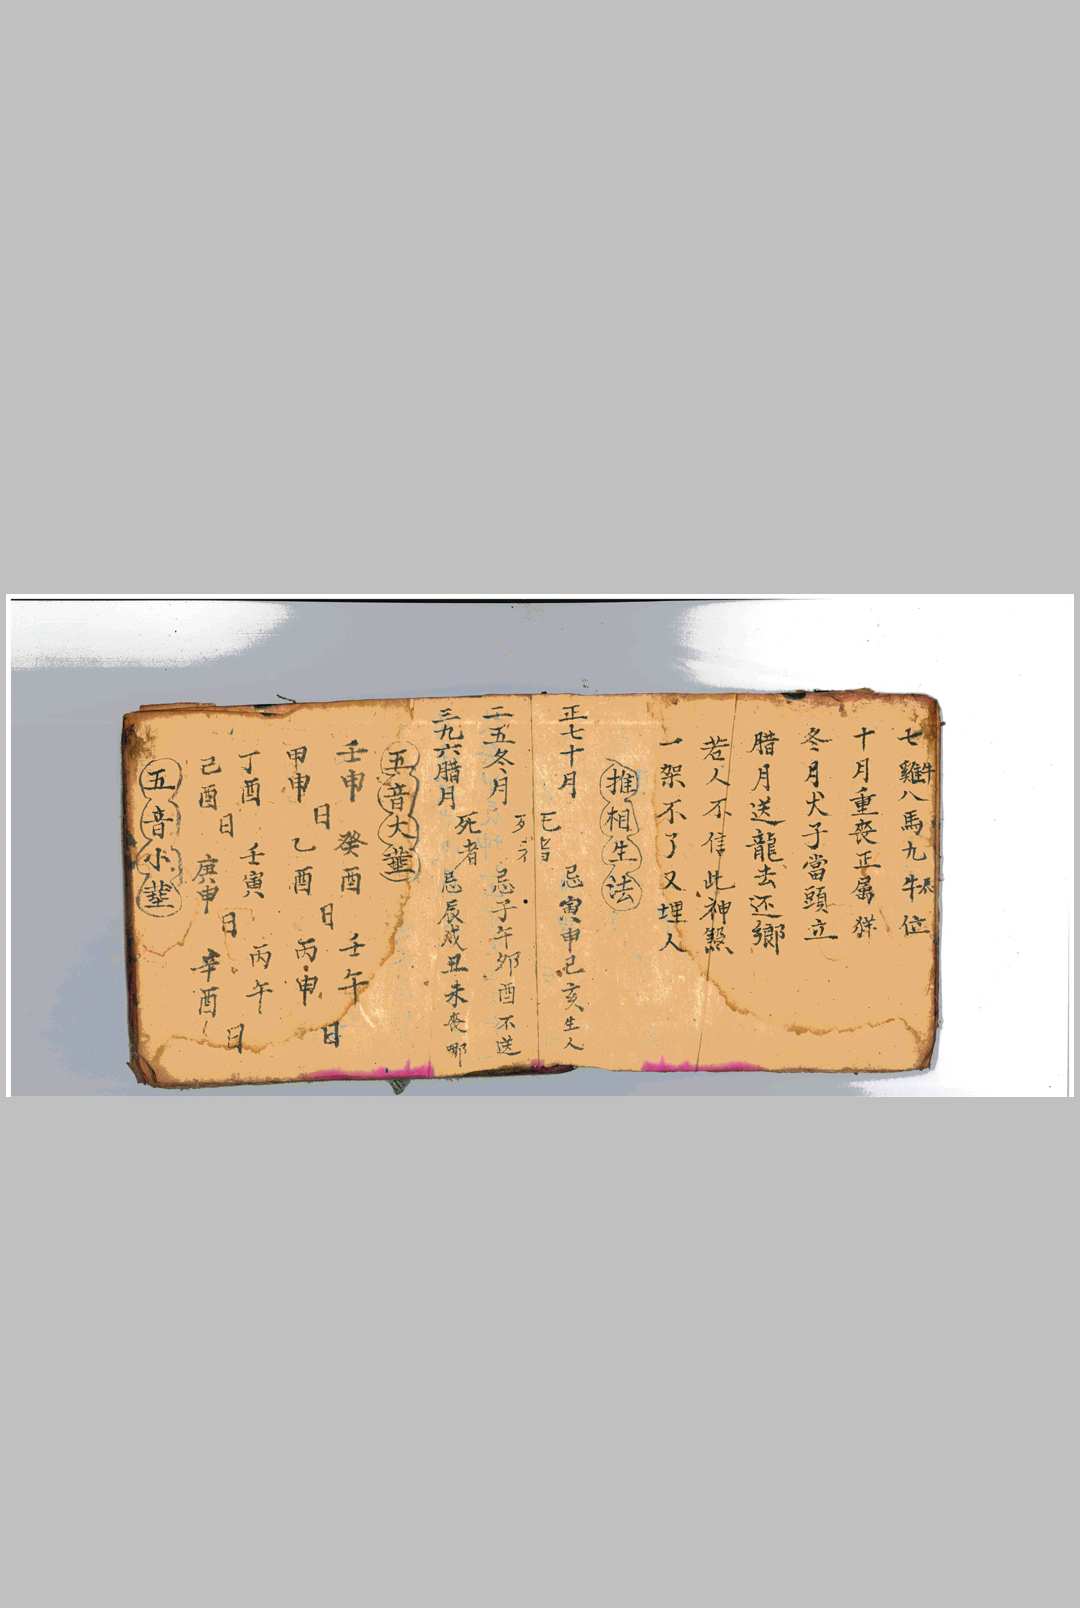 七雞八馬九牛位
十月重喪正屬
冬月犬子當頭立
腊月送龍去还鄉
若人不信此神煞
一架不了又埋人
推相生法
正七十月 忌寅申己亥生人
二五冬月 忌子午卯酉不送
三九六腊月死者忌辰戌丑未喪
五音大
壬申 癸酉 壬午
甲申日 乙酉日 丙申日
丁酉 壬寅 丙午
己酉日 庚申日 辛酉日
五音小